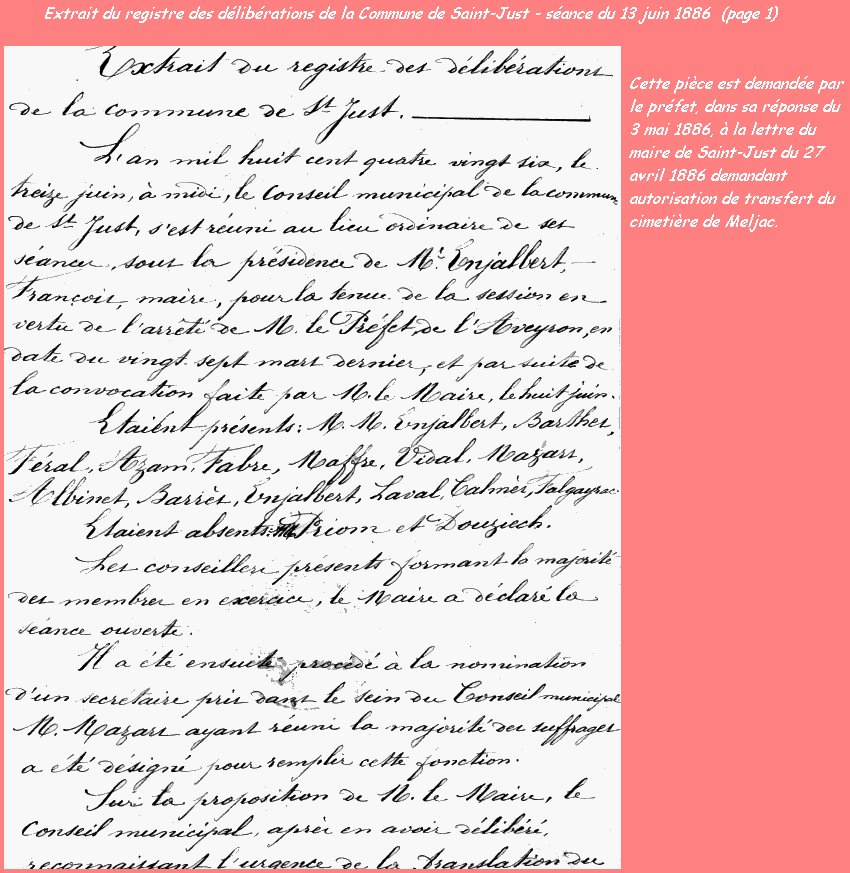 Extrait du registre des délibérations de la Commune de Saint-Just - séance du 13 juin 1886 (page 1)
Extrait du registre des délibérations
de la commune de St Just.
L'an mil huit cent quatre vingt six, le
treize juin, à midi, le Conseil municipal de la commune
de St Just, s'est réuni au lieu ordinaire de ses
séances, sous la présidence de Mr. Enjalbert,
François, maire, pour la tenue de la session en
vertu de l'arrêté de M. le Préfet de l'Aveyron, en
date du vingt sept mars dernier, et par suite de
la convocation faite par M. le Maire, le huit juin.
Etaient présents: M. M. Enjalbert, Barthes,
Féral, Azam, Fabre, Maffre, Vidal, Mazars,
Albinet, Barrès, Enjalbert, Laval, Calmès, Falgayrac
Etaient absents: Priom et Douziech.
Les conseillers présents formant la majorité
des membres en exercice, le Maire a déclaré la
séance ouverte.
Il a été ensuite procédé à la nomination
d'un secrétaire pris dans le sein du Conseil municipal
M. Mazars ayant réuni la majorité des suffrages
a été désigné pour remplir cette fonction.
Sur la proposition de M. le Maire, le
Conseil municipal, après en avoir délibéré,
reconnaissant l'urgence de la translation du
Cette pièce est demandée par
le préfet, dans sa réponse du
3 mai 1886, à la lettre du
maire de Saint-Just du 27
avril 1886 demandant
autorisation de transfert du
cimetière de Meljac.